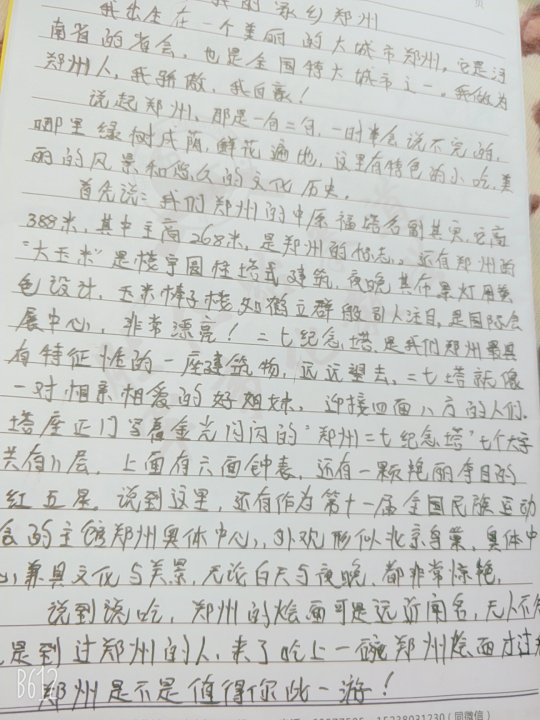 我的家乡郑州
我出生在一个美丽的大城市郑州,它是河
南省的省会,也是全国特大城市之一。我做为
郑州人,我骄傲,我自豪!
说起郑州,那是一句二句,一时半会说不完的,
哪里绿树成荫,鲜花遍地,这里有特色的小吃,美
丽的风景和悠久的文化历史。
首先说:我们郑州的中原福塔名副其实,它高
388米,其中主高268米,是郑州的标志。还有郑州的
"大玉米"是楼宇圆柱塔式建筑,夜晚其布景灯用黄
色设计,玉米棒子楼如鹤立群般引人注目,是国际会
展中心,非常漂亮!二七纪念塔是我们郑州最具
有特征性的一座建筑物,远远望去,二七塔就像
一对相亲相爱的好姐妹,迎接四面八方的人们。
塔座正门写着金光闪闪的"郑州二七纪念塔"七个大字
共有11层,上面有六面钟表,还有一颗艳丽夺目的
红五星。说到这里,还有作为第十一届全国民族运动
会的主馆郑州奥体中心,外观形似北京鸟巢,奥体中
心,兼具文化与美景,无论白天与夜晚,都非常惊艳。
说到谈吃,郑州的烩面可是远近闻名,无人不知
是到过郑州的人,来了吃上一碗郑州烩面才过
郑州是不是值得你此一游!
B612
15238031230(同微信)